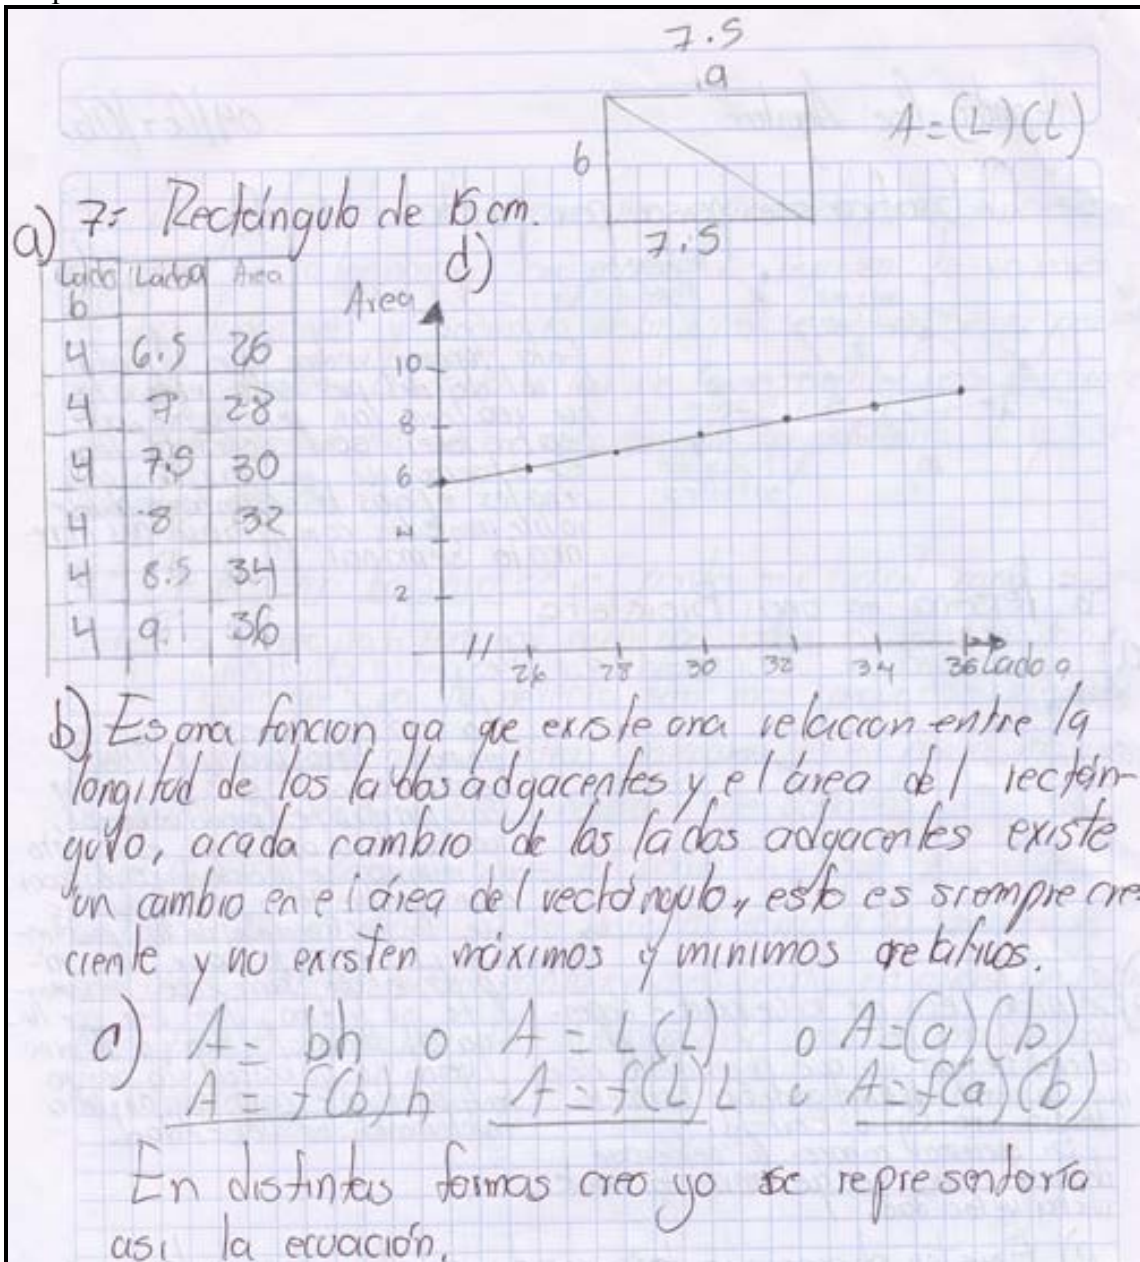 7.5
a
b
A=(L)(L)
7.5
a) 7= Rectángulo de 15 cm.
d)
Lado b Lado a Area
4 6.5 26
4 7 28
4 7.5 30
4 8 32
4 8.5 34
4 9 36
Area
10
8
6
4
2
26 28 30 32 34 36 Lado a
b) Es una función ya que existe una relaccion entre la
longitud de los lados adyacentes y el área del rectán-
gulo, acada cambio de los lados adyacentes existe
un cambio en el área del rectángulo, esto es siempre cre
ciente y no existen máximos y minimos relativos.
c) A = bh o A = L(L) o A=(a)(b)
A = f(b)h A = f(L)L o A=f(a)(b)
En distintas formas creo yo se representaría
asi la ecuación.